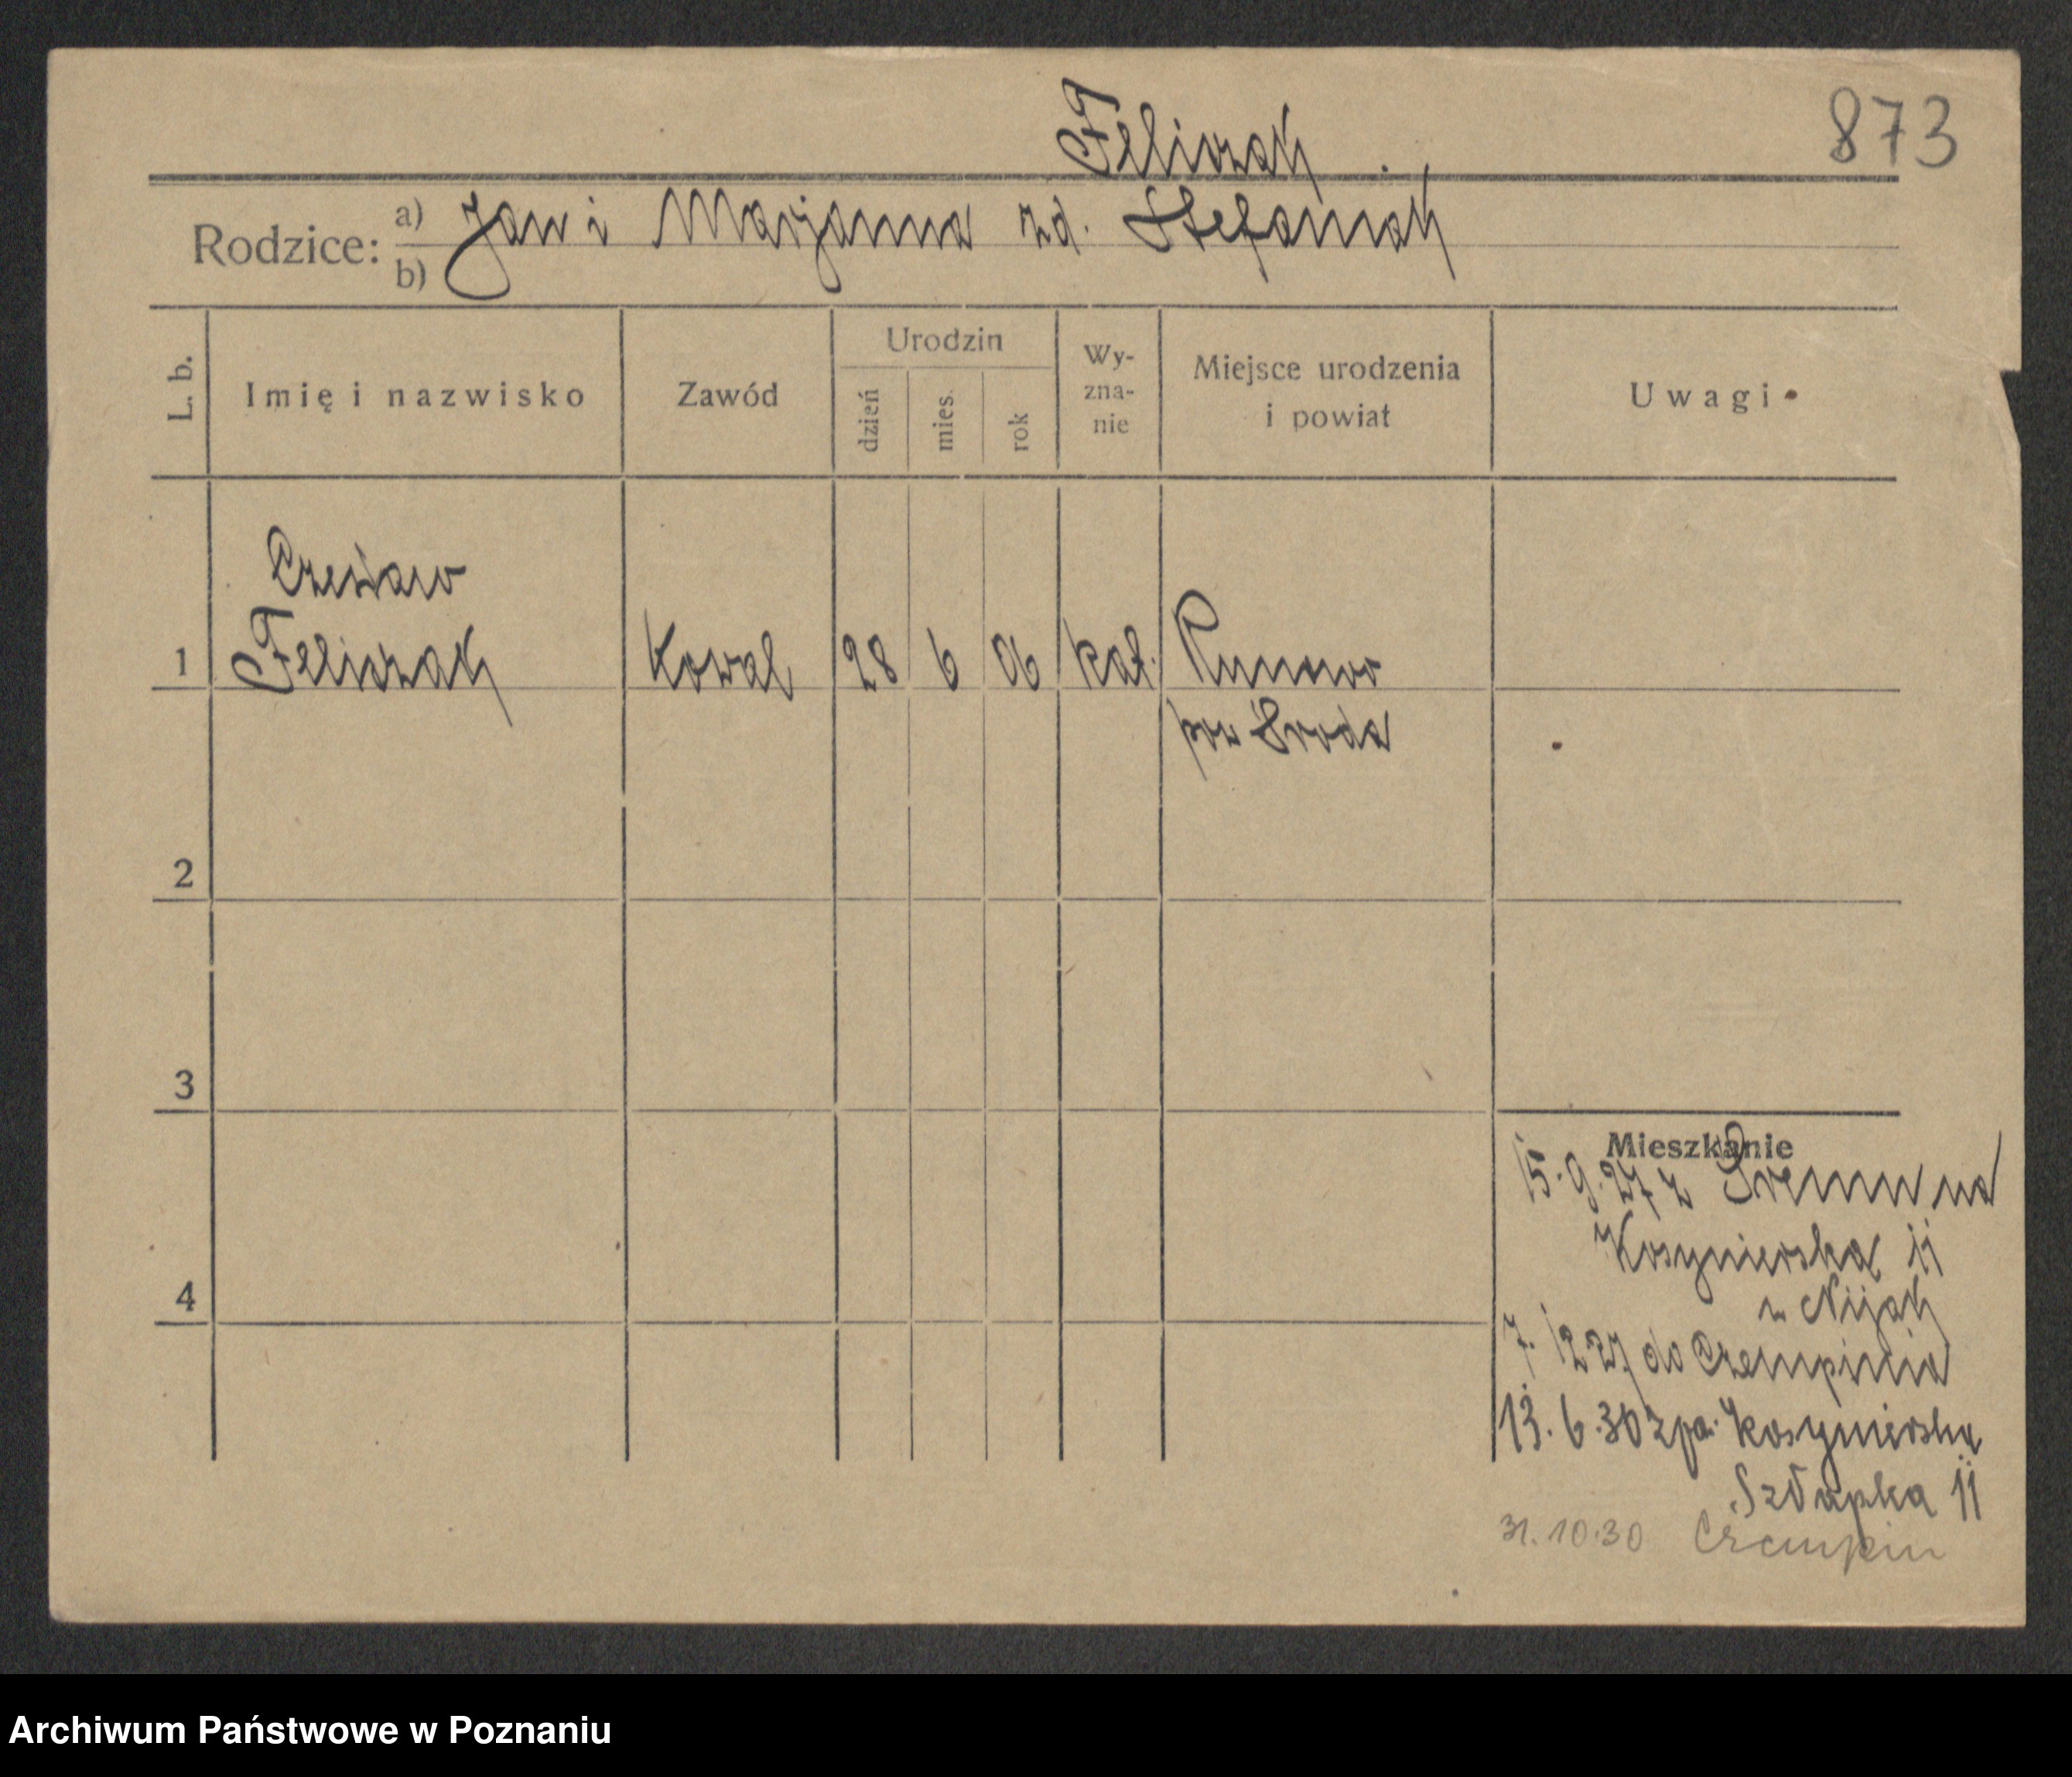 Feliczak
873
Rodzice: a) Jan i Marjanna zd. Stefaniak
b)
L. b.
Imię i nazwisko
Zawód
Urodzin
dzień
mies.
rok
Wy-
zna-
nie
Miejsce urodzenia
i powiat
Uwagi
Czesław
1 Feliczak Kowal 28 6 06 kat. Runowo
pow Środa
2
3
4
Mieszkanie
15.9.27 z Śremu na
Kosynierska 11
u Nijak
7. 12 27 do Czempinia
13. 6. 30 zpa. Kosynierska
Szłapka 11
31.10.30 Czempin
Archiwum Państwowe w Poznaniu